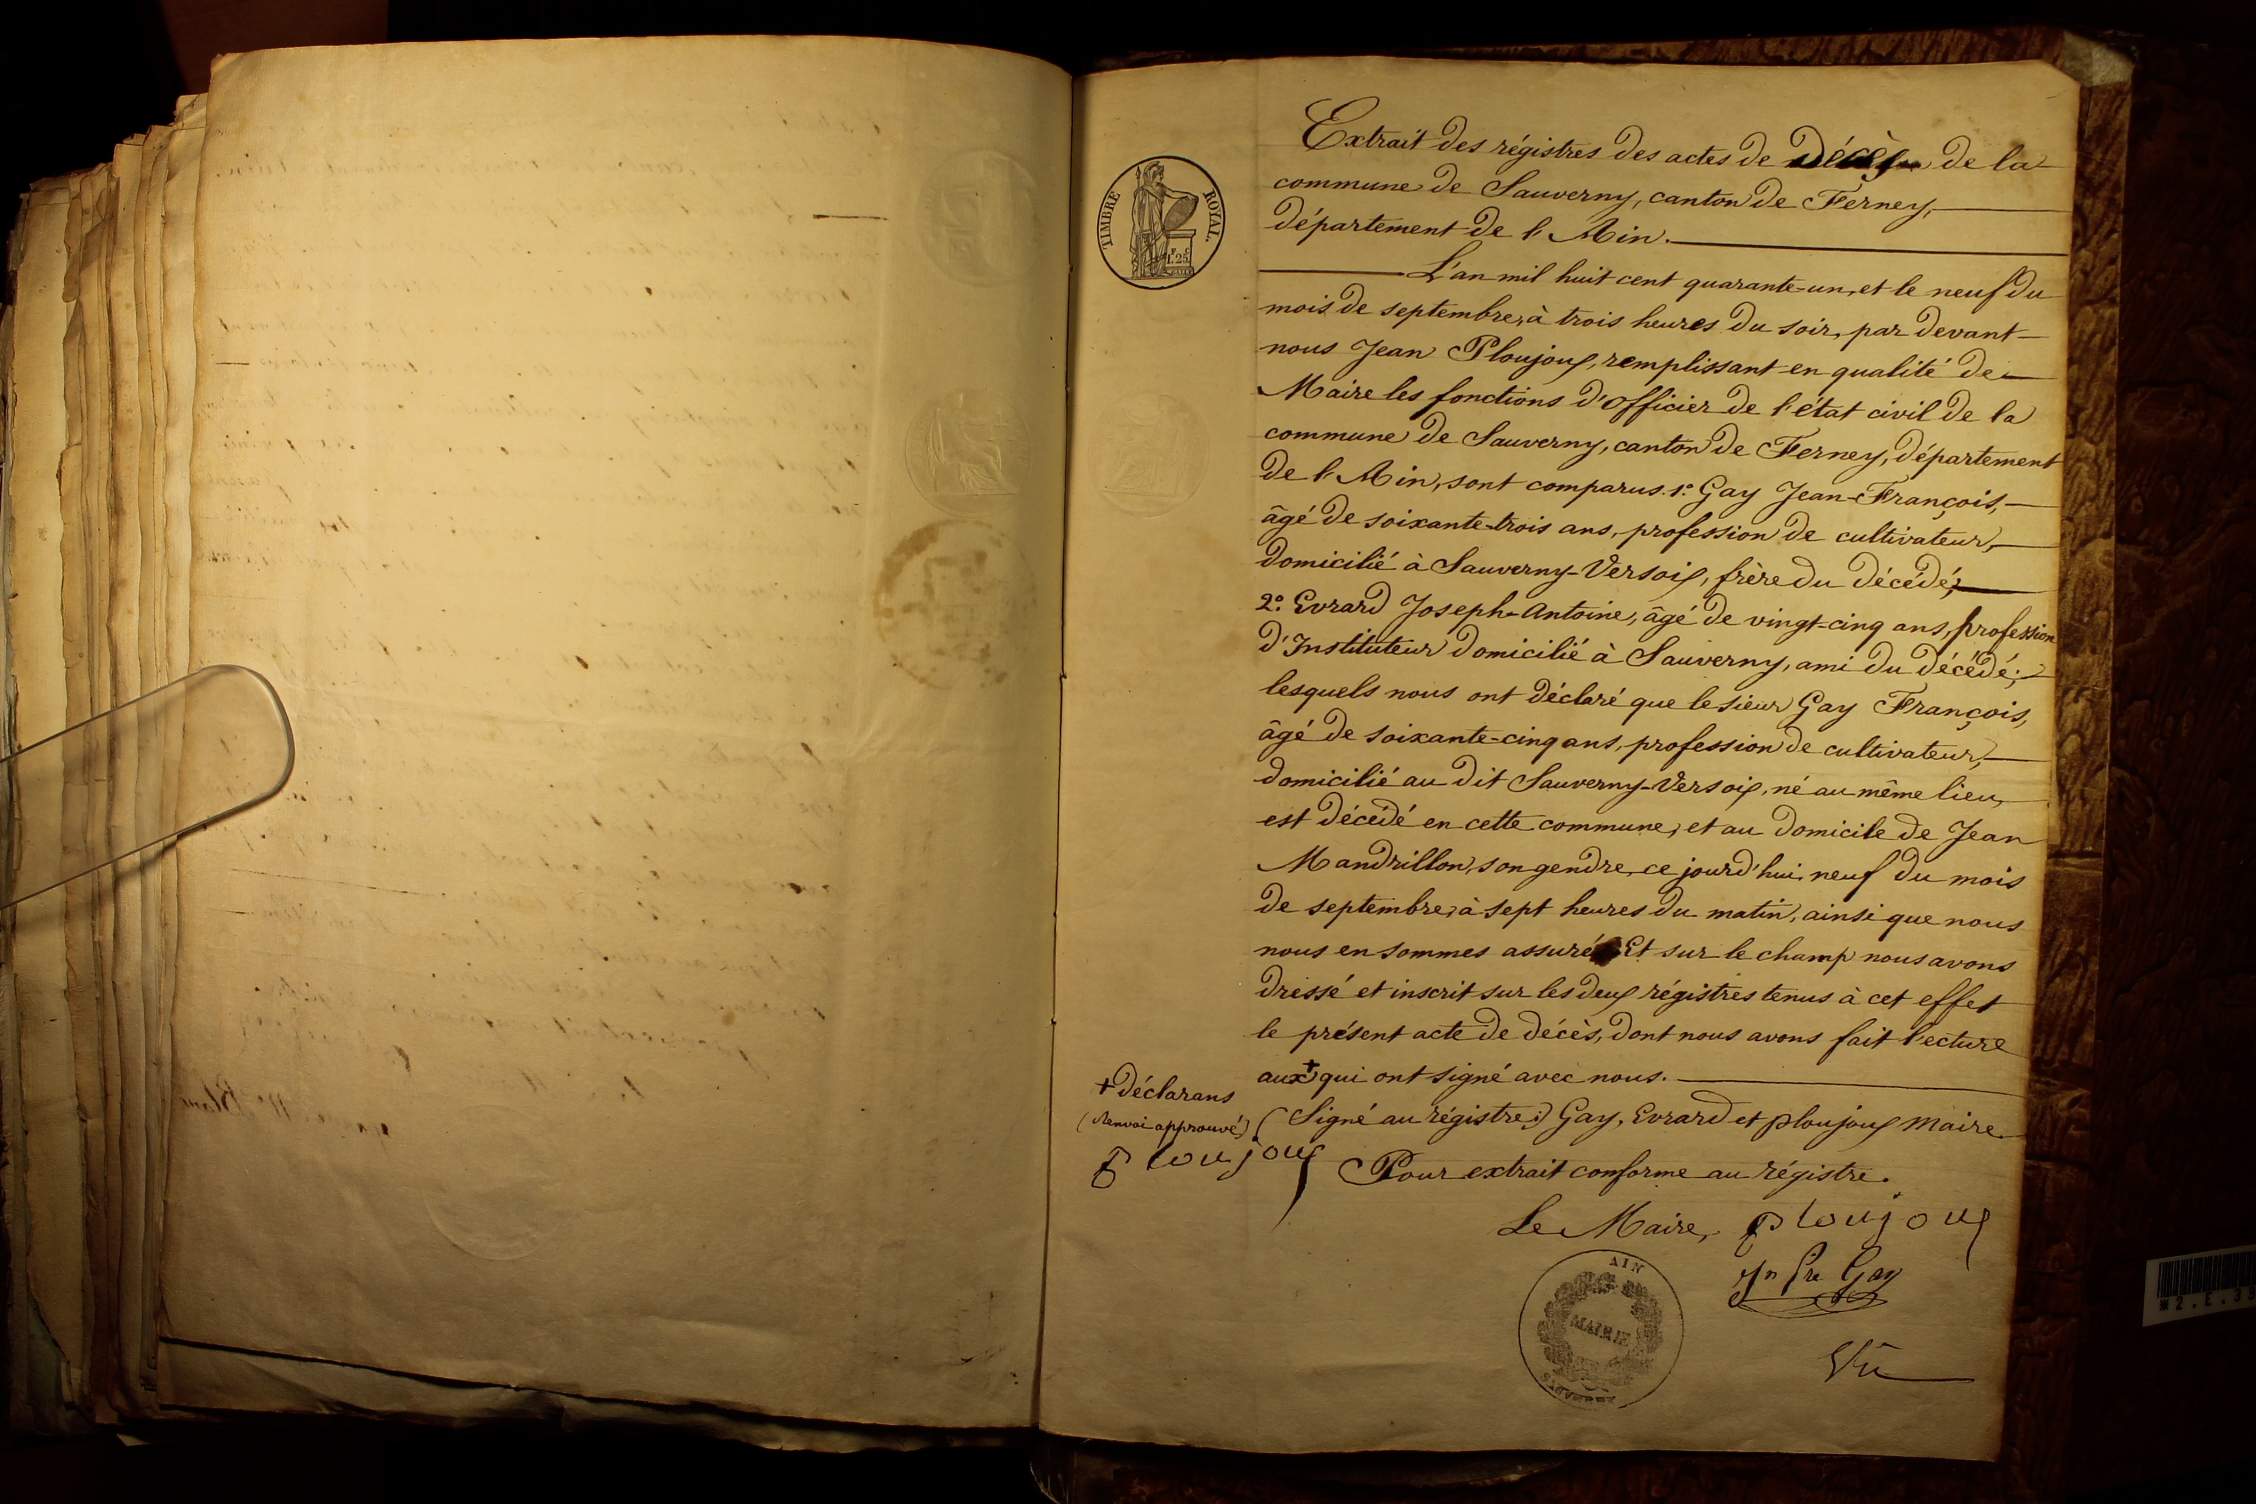 TIMBRE ROYAL.
1.F25
Extrait des régistres des actes de Décès de la
commune de Sauverny, canton de Ferney,
département de l'Ain.
L'an mil huit cent quarante-un, et le neuf du
mois de septembre, à trois heures du soir, par devant
nous Jean Ploujoux, remplissant en qualité de
Maire les fonctions d'officier de l'état civil de la
commune de Sauverny, canton de Ferney, département
de l'Ain, sont comparus. 1º. Gay Jean-François,
âgé de soixante-trois ans, profession de cultivateur,
domicilié à Sauverny-Versoix, frère du décédé;
2º. Evrard Joseph-Antoine, âgé de vingt-cinq ans, profession
d'Instituteur domicilié à Sauverny, ami du décédé;
lesquels nous ont déclaré que le sieur Gay François,
âgé de soixante-cinq ans, profession de cultivateur,
domicilié au dit Sauverny-Versoix, né au même lieu,
est décédé en cette commune, et au domicile de Jean
Mandrillon, son gendre, ce jourd'hui neuf du mois
de septembre, à sept heures du matin, ainsi que nous
nous en sommes assuré Et sur le champ nous avons
dressé et inscrit sur les deux régistres tenus à cet effet
le présent acte de décès, dont nous avons fait lecture
aux + qui ont signé avec nous.
+ déclarans
(Renvoi approuvé)
Ploujoux
(Signé au régistre:) Gay, Evrard et Ploujoux Maire
Pour extrait conforme au régistre.
Le Maire, Ploujoux
Jn Fre Gay
Vu
AIN
MAIRIE